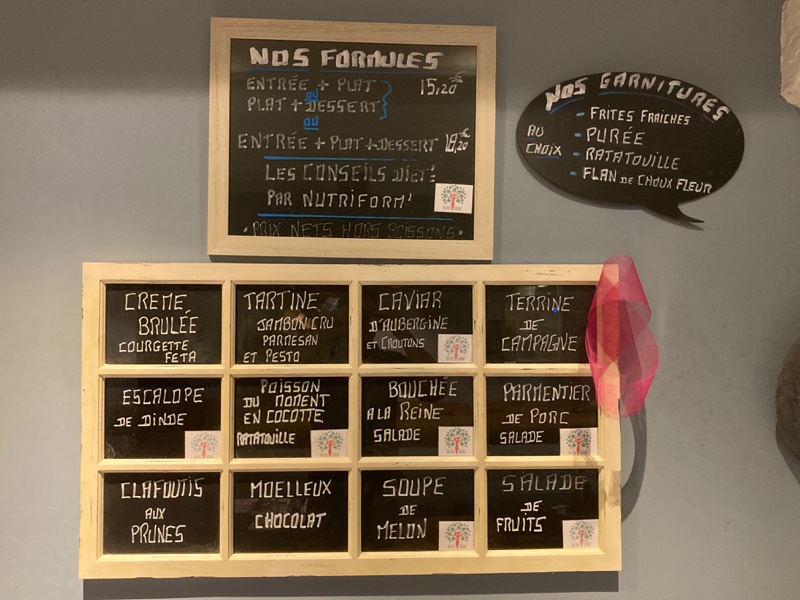 NOS FORMULES
ENTRÉE + PLAT 15,20€
ou
PLAT + DESSERT
ou
ENTRÉE + PLAT + DESSERT 18,20€
LES CONSEILS DIET'
PAR NUTRIFORM'
• PRIX NETS HORS BOISSONS •
NOS GARNITURES
AU CHOIX
- FRITES FRAICHES
- PURÉE
- RATATOUILLE
- FLAN DE CHOUX FLEUR
CREME
BRULÉE
COURGETTE
FETA
TARTINE
JAMBON CRU
PARMESAN
ET PESTO
CAVIAR
D'AUBERGINE
ET CROUTONS
TERRINE
DE
CAMPAGNE
ESCALOPE
DE DINDE
POISSON
DU MOMENT
EN COCOTTE
RATATOUILLE
BOUCHÉE
A LA REINE
SALADE
PARMENTIER
DE PORC
SALADE
CLAFOUTIS
AUX
PRUNES
MOELLEUX
CHOCOLAT
SOUPE
DE
MELON
SALADE
DE
FRUITS